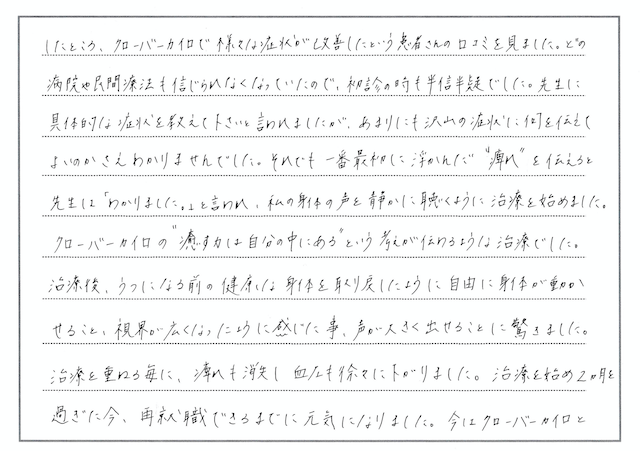 したところ、クローバーカイロで様々な症状が改善したという患者さんの口コミを見ました。どの
病院や民間療法も信じられなくなっていたので、初診の時も半信半疑でした。先生に
具体的な症状を教えて下さいと言われましたが、あまりにも沢山の症状に何を伝えて
よいのかさえわかりませんでした。それでも一番最初に浮かんだ"痺れ"を伝えると
先生は「わかりました。」と言われ、私の身体の声を静かに聴くように治療を始めました。
クローバーカイロの"癒す力は自分の中にある"という考えが伝わるような治療でした。
治療後、うつになる前の健康な身体を取り戻したように自由に身体が動か
せること、視界が広くなったように感じた事、声が大きく出せることに驚きました。
治療を重ねる毎に、痺れも消失し血圧も徐々に下がりました。治療を始め2ヵ月を
過ぎた今、再就職できるまでに元気になりました。今はクローバーカイロと